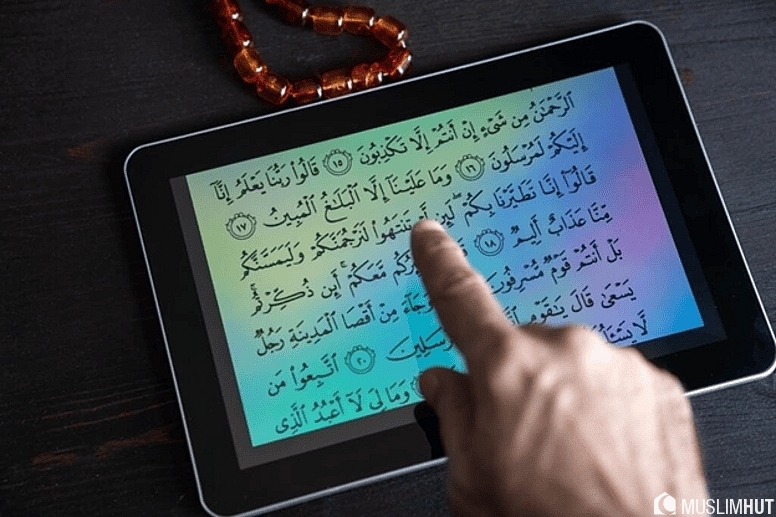 ٱلرَّحْمَٰنُ مِن شَىْءٍ إِنْ أَنتُمْ إِلَّا تَكْذِبُونَ ١٥ قَالُوا۟ رَبُّنَا يَعْلَمُ إِنَّآ
إِلَيْكُمْ لَمُرْسَلُونَ ١٦ وَمَا عَلَيْنَآ إِلَّا ٱلْبَلَٰغُ ٱلْمُبِينُ ١٧
قَالُوٓا۟ إِنَّا تَطَيَّرْنَا بِكُمْ لَئِن تَنتَهُوا۟ لَنَرْجُمَنَّكُمْ وَلَيَمَسَّنَّكُم
مِّنَّا عَذَابٌ أَلِيمٌ ١٨ مَّعَكُمْ أَئِن ذُكِّرْتُم
بَلْ أَنتُمْ قَوْمٌ مُّسْرِفُونَ وَجَآءَ مِنْ أَقْصَا ٱلْمَدِينَةِ رَجُلٌ
يَسْعَىٰ قَالَ يَٰقَوْمِ ٢٠ ٱتَّبِعُوا۟ مَن
لَّا وَمَا لِىَ لَآ أَعْبُدُ ٱلَّذِى
MUSLIMHUT